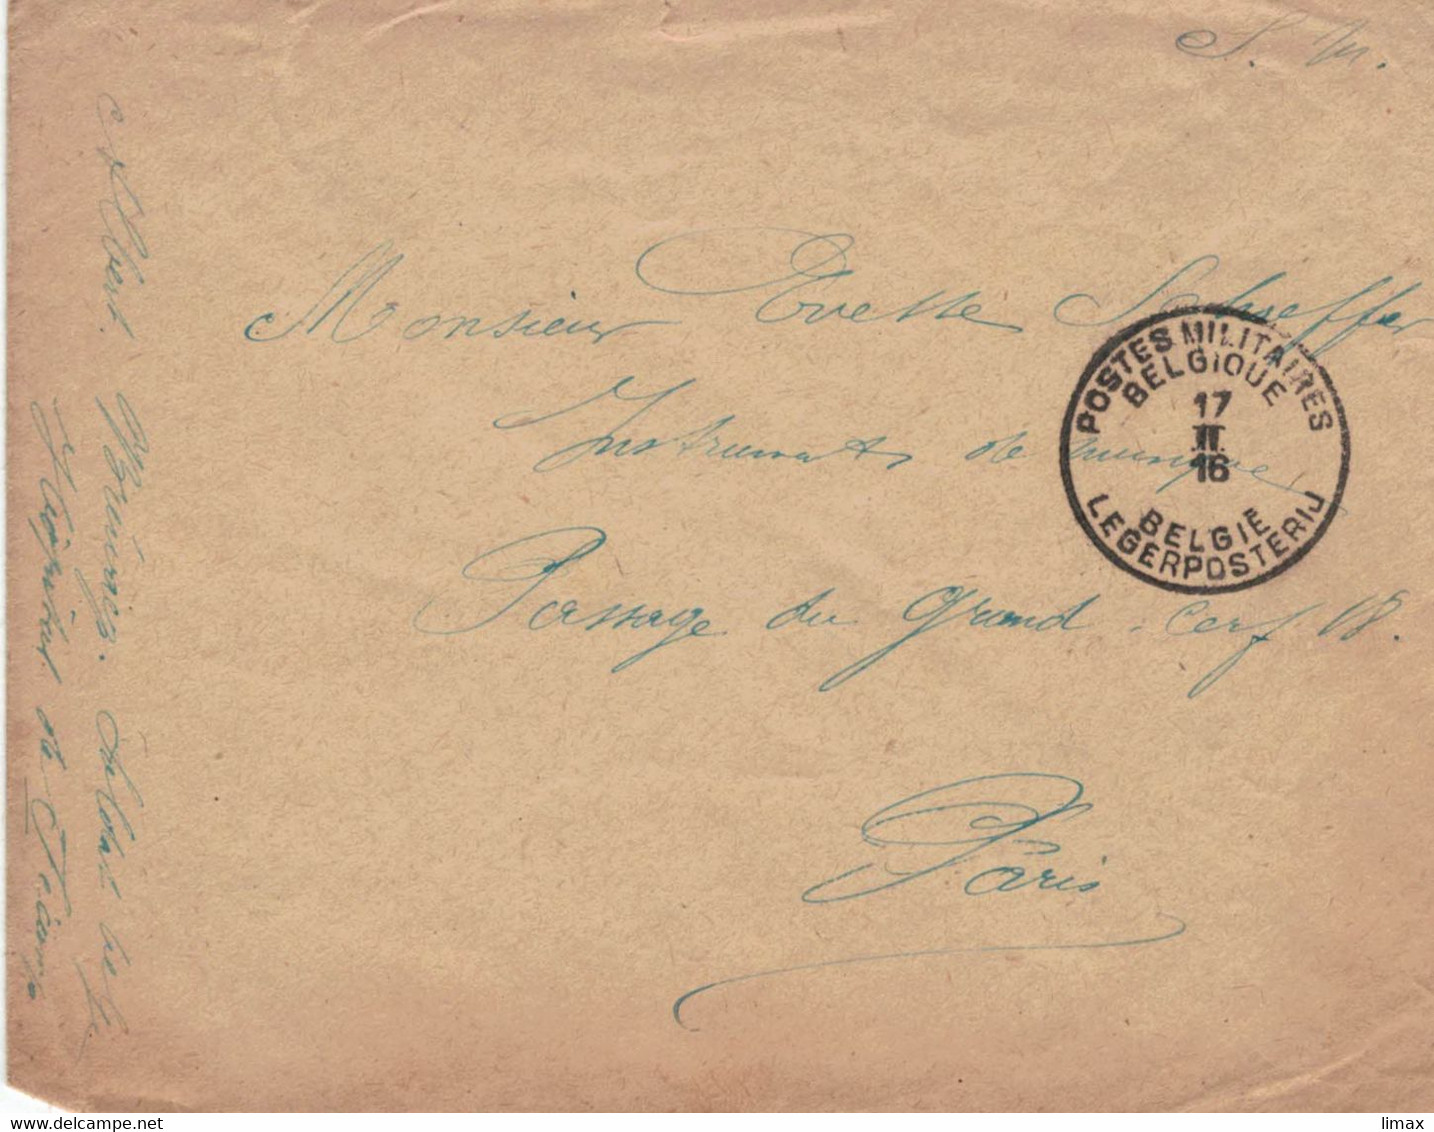 S. M.
Monsieur Evette Schaeffer
Instruments de musique
Passage du Grand-Cerf 18.
Paris
POSTES MILITAIRES
BELGIQUE
17
II
16
BELGIE
LEGERPOSTERIJ
Albert
de
limax